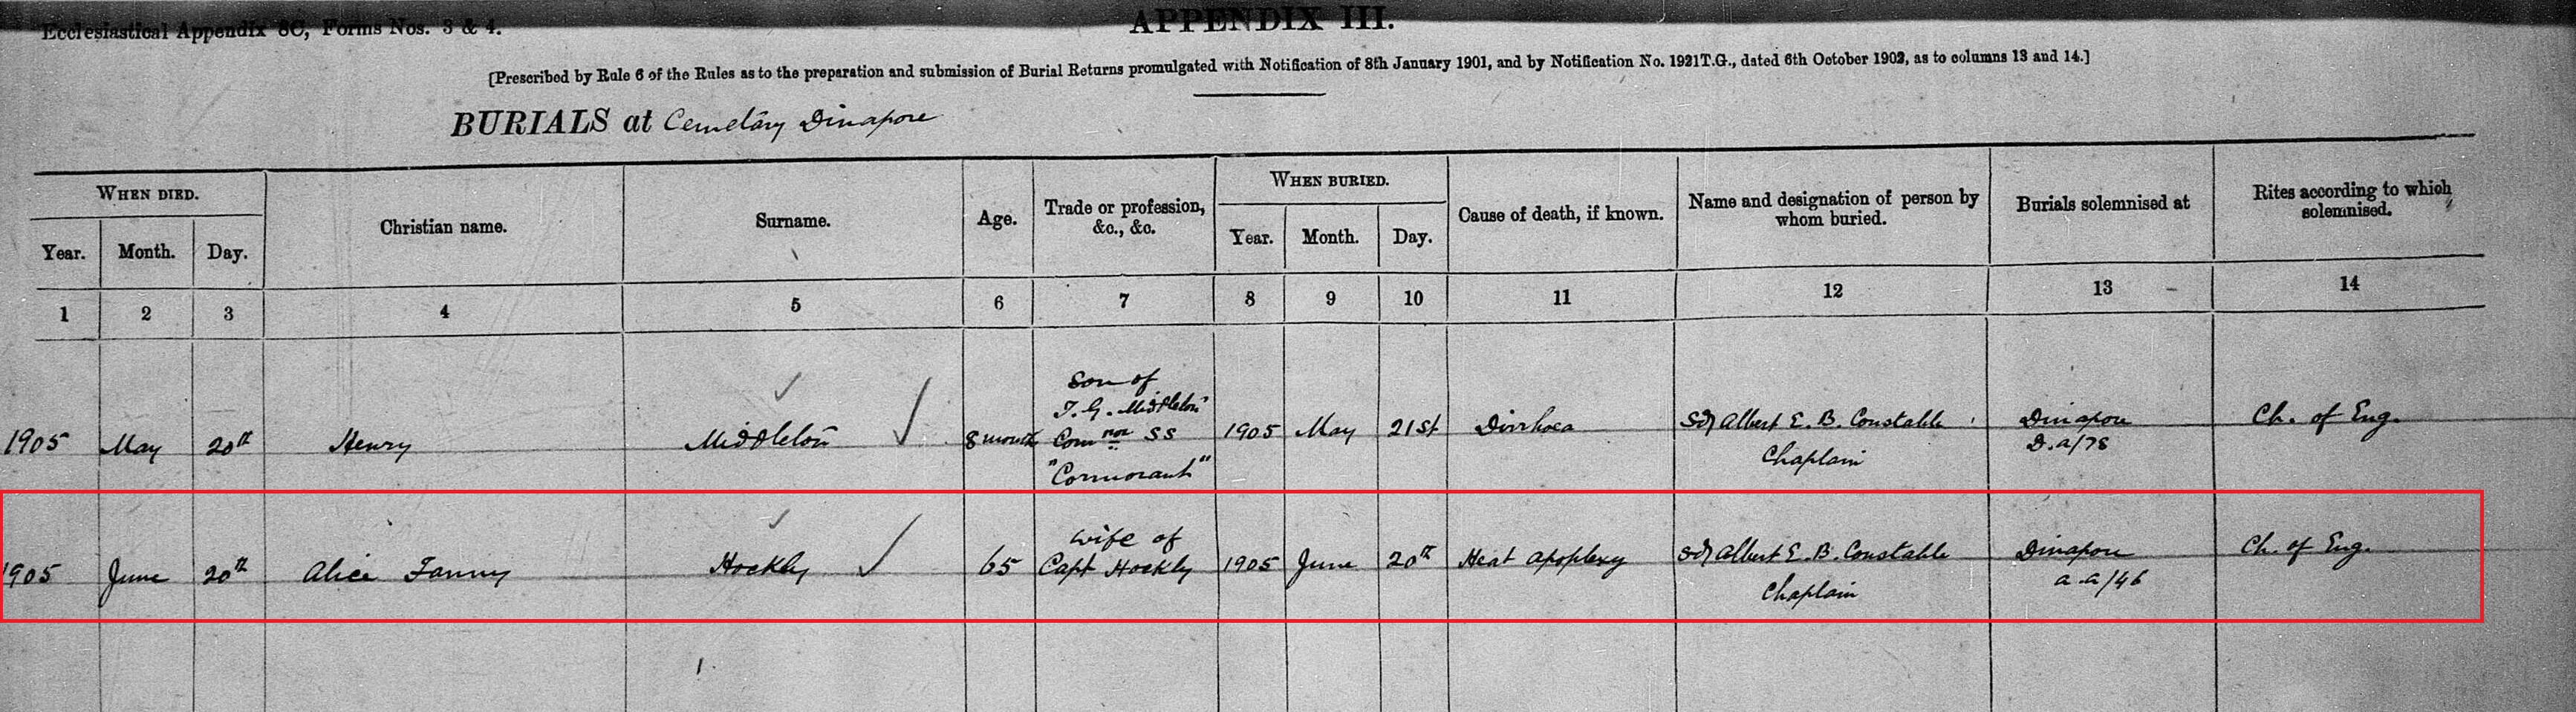 Ecclesiastical Appendix 8C, Forms Nos. 3 & 4.
APPENDIX III.
[Prescribed by Rule 6 of the Rules as to the preparation and submission of Burial Returns promulgated with Notification of 8th January 1901, and by Notification No. 1921T.G., dated 6th October 1902, as to columns 13 and 14.]
BURIALS at Cemetary Dinapore
WHEN DIED.
Year. Month. Day.
Christian name.
Surname.
Age.
Trade or profession,
&c., &c.
WHEN BURIED.
Year. Month. Day.
Cause of death, if known.
Name and designation of person by
whom buried.
Burials solemnised at
Rites according to which
solemnised.
1 2 3 4 5 6 7 8 9 10 11 12 13 14
1905 May 20th Henry Middleton 8 month
son of
T. G. Middleton
Comnr SS
"Cormorant"
1905 May 21st Dirrhoea
Sd/ Albert E. B. Constable
Chaplain
Dinapore
D.a/78
Ch. of Eng.
1905 June 20th Alice Fanny Hockly 65
wife of
Capt Hockly
1905 June 20th Heat apoplexy
Sd/ Albert E. B. Constable
Chaplain
Dinapore
a.a/46
Ch. of Eng.